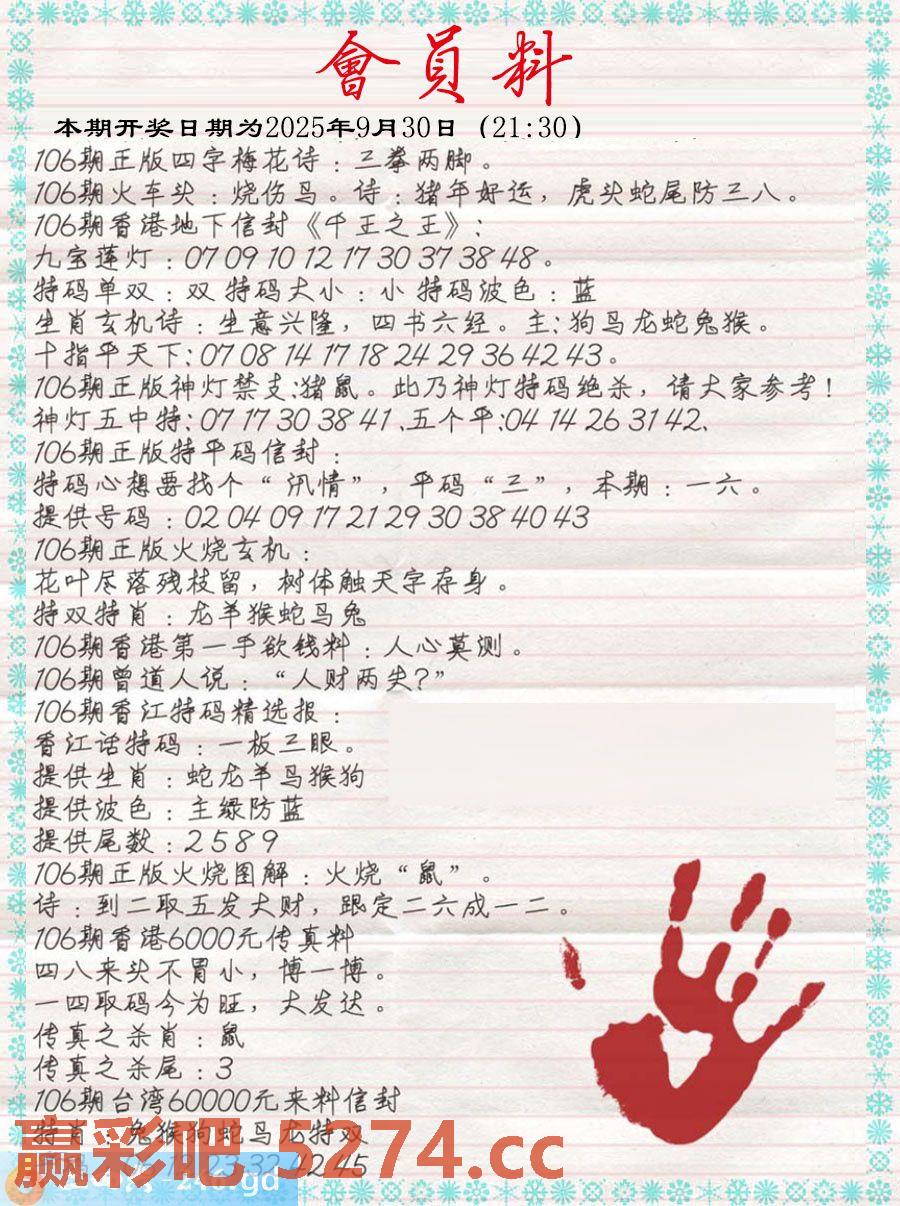 會員料
本期开奖日期为2025年9月30日（21:30）
106期正版四字梅花诗：三拳两脚。
106期火车头：烧伤鸟。诗：猪年好运，虎头蛇尾防三八。
106期香港地下信封《千王之王》：
九宝莲灯：07 09 10 12 17 30 37 38 48。
特码单双：双 特码大小：小 特码波色：蓝
生肖玄机诗：生意兴隆，四书六经。主：狗鸟龙蛇兔猴。
十指平天下：07 08 14 17 18 24 29 36 42 43。
106期正版神灯禁支：猪鼠。此乃神灯特码绝杀，请大家参考！
神灯五中特：07 17 30 38 41、五个平：04 14 26 31 42、
106期正版特平码信封：
特码心想要找个“汛情”，平码“三”，本期：一六。
提供号码：02 04 09 17 21 29 30 38 40 43
106期正版火烧玄机：
花叶尽落残枝留，树体触天字存身。
特双特肖：龙羊猴蛇鸟兔
106期香港第一手欲钱料：人心莫测。
106期曾道人说：“人财两失？”
106期香江特码精选报：
香江话特码：一板三眼。
提供生肖：蛇龙羊鸟猴狗
提供波色：主绿防蓝
提供尾数：2 5 8 9
106期正版火烧图解：火烧“鼠”。
诗：到二取五发大财，跟定二六成一二。
106期香港6000元传真料
四八来头不胃小，博一博。
一四取码今为旺，大发达。
传真之杀肖：鼠
传真之杀尾：3
106期台湾60000元来料信封
特肖：兔猴狗蛇鸟龙特双
23 32 42 45
赢彩吧.5274.cc